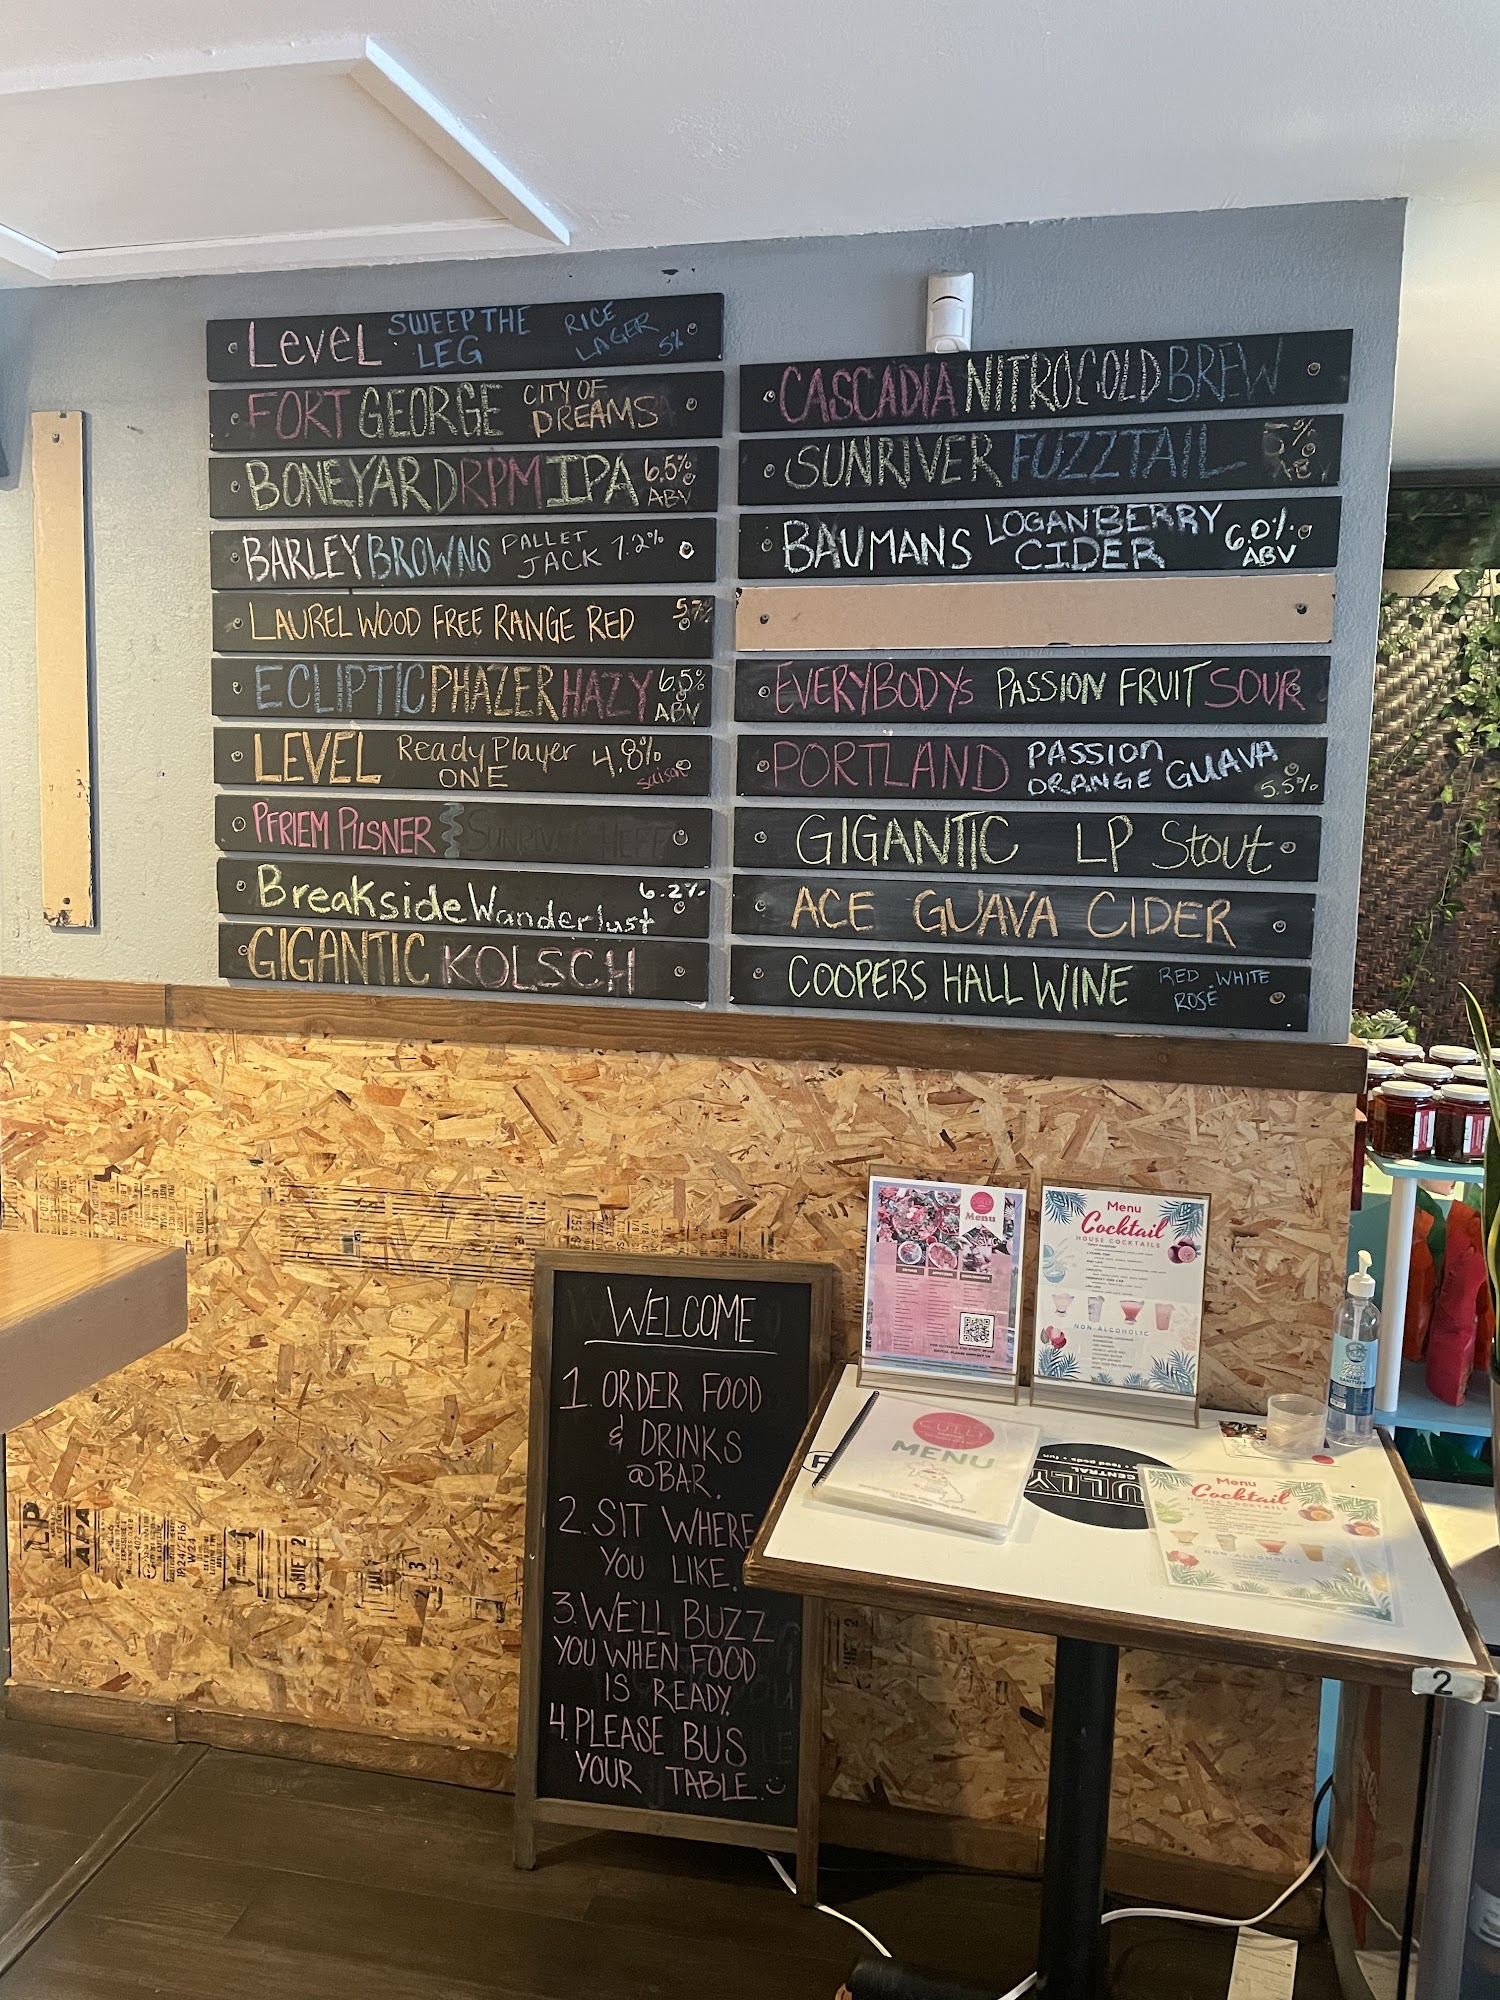 Level SWEEP THE LEG RICE LAGER 5%
FORT GEORGE CITY OF DREAMS
BONEYARD RPM IPA 6.5% ABV
BARLEY BROWNS PALLET JACK 7.2%
LAURELWOOD FREE RANGE RED 5.7%
ECLIPTIC PHAZER HAZY 6.5% ABV
LEVEL Ready Player ONE 4.8% saison
PFRIEM PILSNER SUNRIVER HEFE
Breakside Wanderlust 6.2%
GIGANTIC KOLSCH
CASCADIA NITRO COLD BREW
SUNRIVER FUZZTAIL 5% ABV
BAUMANS LOGANBERRY CIDER 6.0% ABV
EVERYBODYS PASSION FRUIT SOUR
PORTLAND PASSION ORANGE GUAVA 5.5%
GIGANTIC LP Stout
ACE GUAVA CIDER
COOPERS HALL WINE RED WHITE ROSÉ
WELCOME
1. ORDER FOOD
& DRINKS
@BAR.
2. SIT WHERE
YOU LIKE.
3. WE'LL BUZZ
YOU WHEN FOOD
IS READY.
4. PLEASE BUS
YOUR TABLE.
Menu
Menu
Cocktail
HOUSE COCKTAILS
NON-ALCOHOLIC
CULLY
MENU
CULLY
CENTRAL
Menu
Cocktail
HOUSE COCKTAILS
NON-ALCOHOLIC
HAND SANITIZER
2
LP
APA